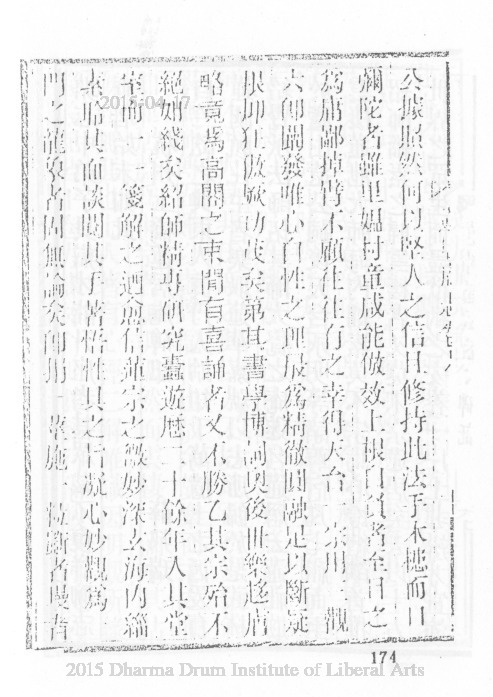 公據照然何以堅人之信且修持此法手木槵而口
彌陀者雖里媼村童咸能倣效上根自負者至目之
為庸鄙掉臂不顧往往有之幸得天台一宗用三觀
六即闡發唯心自性之理最為精徹圓融足以斷疑
根抑狂倣厥功茂矣第其書學博詞奧後世樂趨
略竟為高閣之束間有喜誦者又不勝乙其宗殆不
絕如綫矣紹師精專研究蠹遊歷二十餘年入其堂
室而一一箋解之迺愈信蓮宗之微妙深玄海內緇
素聆其面談閱其手著悟性具之旨凝心妙觀為
門之龍象者固無論矣即用一華施一粒斷者
174
2015-04-17
2015 Dharma Drum Institute of Liberal Arts